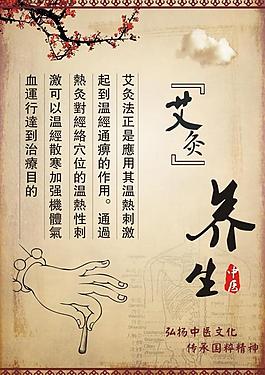 『艾灸』
养生
中医
艾灸法正是應用其温熱刺激
起到温經通痹的作用。通過
熱灸對經絡穴位的温熱性刺
激可以温經散寒加强機體氣
血運行達到治療目的
弘扬中医文化
传承国粹精神